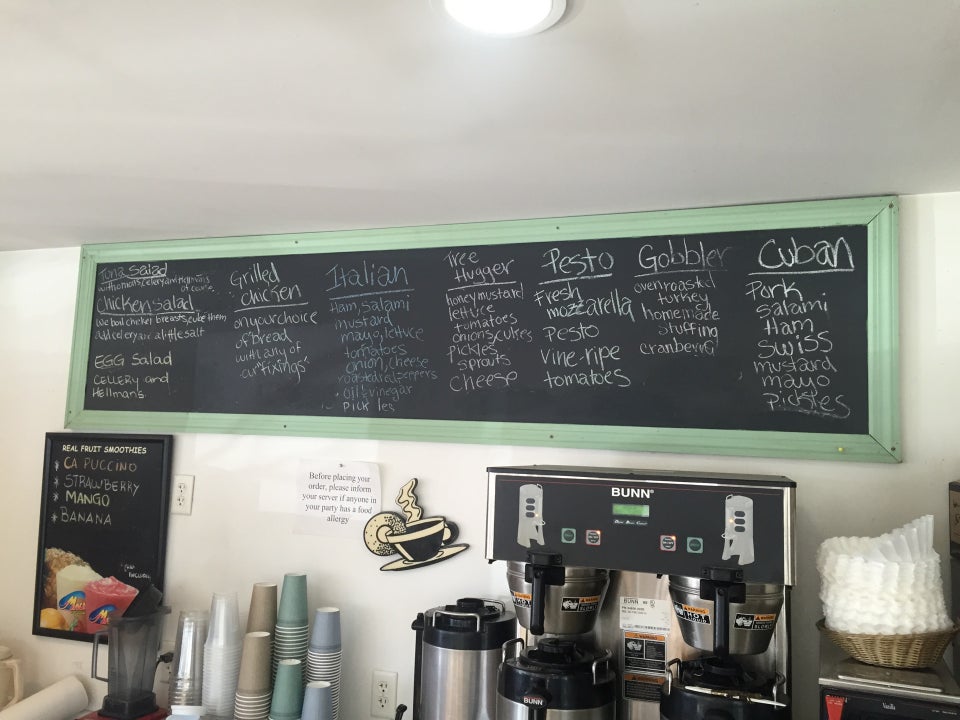 Tuna Salad
with tomatoes, celery and Hellman's
of course.
Chicken Salad
We boil chicken breasts, cube them
Add celery and a little salt
EGG Salad
CELLERY and
Hellman's.
Grilled
Chicken
on your choice
of bread
with any of
our "fixings"
Italian
Ham, Salami
mustard
mayo, lettuce
tomatoes
onion, cheese
roasted red peppers
oil & vinegar
PICKles
Tree
Hugger
honey mustard
lettuce
tomatoes
onions, cukes
Pickles
sprouts
Cheese
Pesto
Fresh
mozzarella
Pesto
Vine-ripe
tomatoes
Gobbler
oven roasted
turkey
homemade
stuffing
cranberry
Cuban
Pork
Salami
Ham
Swiss
mustard
mayo
Pickles
REAL FRUIT SMOOTHIES
* CAPUCCINO
* STRAWBERRY
* MANGO
* BANANA
Before placing your
order, please inform
your server if anyone in
your party has a food
allergy
BUNN
BUNN
WARNING
WARNING
BUNN
Vanilla